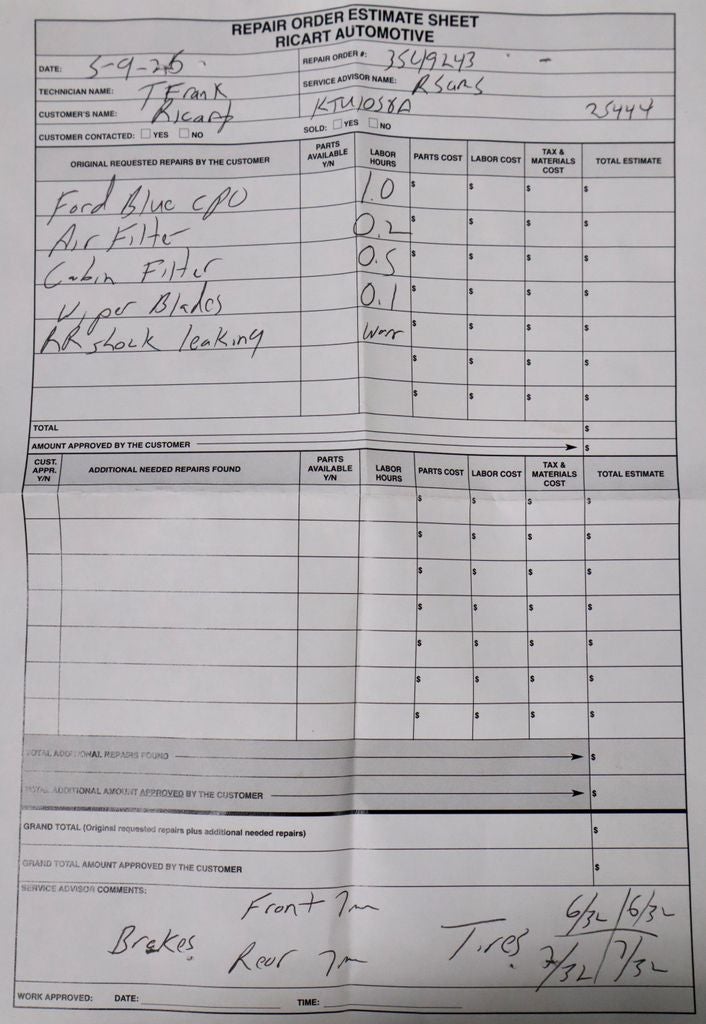 REPAIR ORDER ESTIMATE SHEET
RICART AUTOMOTIVE
DATE: 5-9-26
REPAIR ORDER #: 3549243 -
TECHNICIAN NAME: T Frank
SERVICE ADVISOR NAME: RSams
CUSTOMER'S NAME: Ricart
KTU1058A 25444
CUSTOMER CONTACTED: YES NO
SOLD: YES NO
ORIGINAL REQUESTED REPAIRS BY THE CUSTOMER PARTS AVAILABLE Y/N LABOR HOURS PARTS COST LABOR COST TAX & MATERIALS COST TOTAL ESTIMATE
Ford Blue CPO 1.0 $ $ $ $
Air Filter 0.2 $ $ $ $
Cabin Filter 0.5 $ $ $ $
Wiper Blades 0.1 $ $ $ $
RR shock leaking Warr $ $ $ $
$ $ $ $
$ $ $ $
TOTAL $
AMOUNT APPROVED BY THE CUSTOMER $
CUST. APPR. Y/N ADDITIONAL NEEDED REPAIRS FOUND PARTS AVAILABLE Y/N LABOR HOURS PARTS COST LABOR COST TAX & MATERIALS COST TOTAL ESTIMATE
$ $ $ $
$ $ $ $
$ $ $ $
$ $ $ $
$ $ $ $
$ $ $ $
$ $ $ $
TOTAL ADDITIONAL REPAIRS FOUND $
TOTAL ADDITIONAL AMOUNT APPROVED BY THE CUSTOMER $
GRAND TOTAL (Original requested repairs plus additional needed repairs) $
GRAND TOTAL AMOUNT APPROVED BY THE CUSTOMER $
SERVICE ADVISOR COMMENTS:
Front 7m 6/32 6/32
Brakes. Tires.
Rear 7m 7/32 7/32
WORK APPROVED: DATE: TIME: